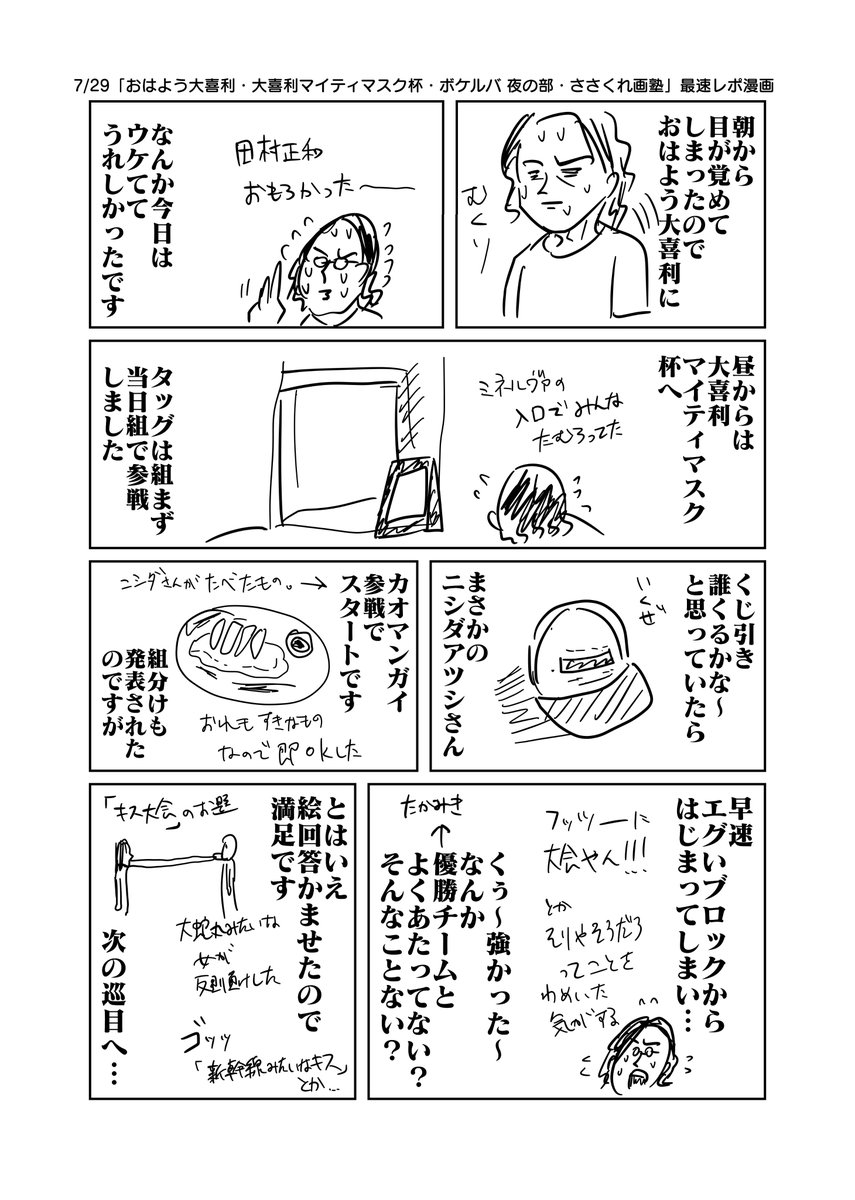 7/29「おはよう大喜利・大喜利マイティマスク杯・ボケルバ 夜の部・ささくれ画塾」最速レポ漫画
朝から
目が覚めて
しまったので
おはよう大喜利に
むくり
田村正和
おもろかった〜
なんか今日は
ウケてて
うれしかったです
昼からは
大喜利
マイティマスク
杯へ
ミネルヴァの
入口でみんな
たむろってた
タッグは組まず
当日組で参戦
しました
くじ引き
誰くるかな〜
と思っていたら
いくぜッ
まさかの
ニシダアツシさん
カオマンガイ
参戦で
スタートです
ニシダさんがたべたもの。→
おれもすきなもの
なので即OKした
組分けも
発表された
のですが
早速
エグいブロックから
はじまってしまい…
フッツーに
大会やん!!!
とか
そりゃそうだろ
ってことを
わめいた
気がする
くぅ〜強かった〜
なんか
優勝チームと
よくあたってない?
そんなことない?
たかみき
とはいえ
絵回答かませたので
満足です
「キス大会」のお題
大蛇丸みたいな
女が
反則負けした
ゴッッ
「新幹線みたいなキス」
とか…
次の巡目へ…